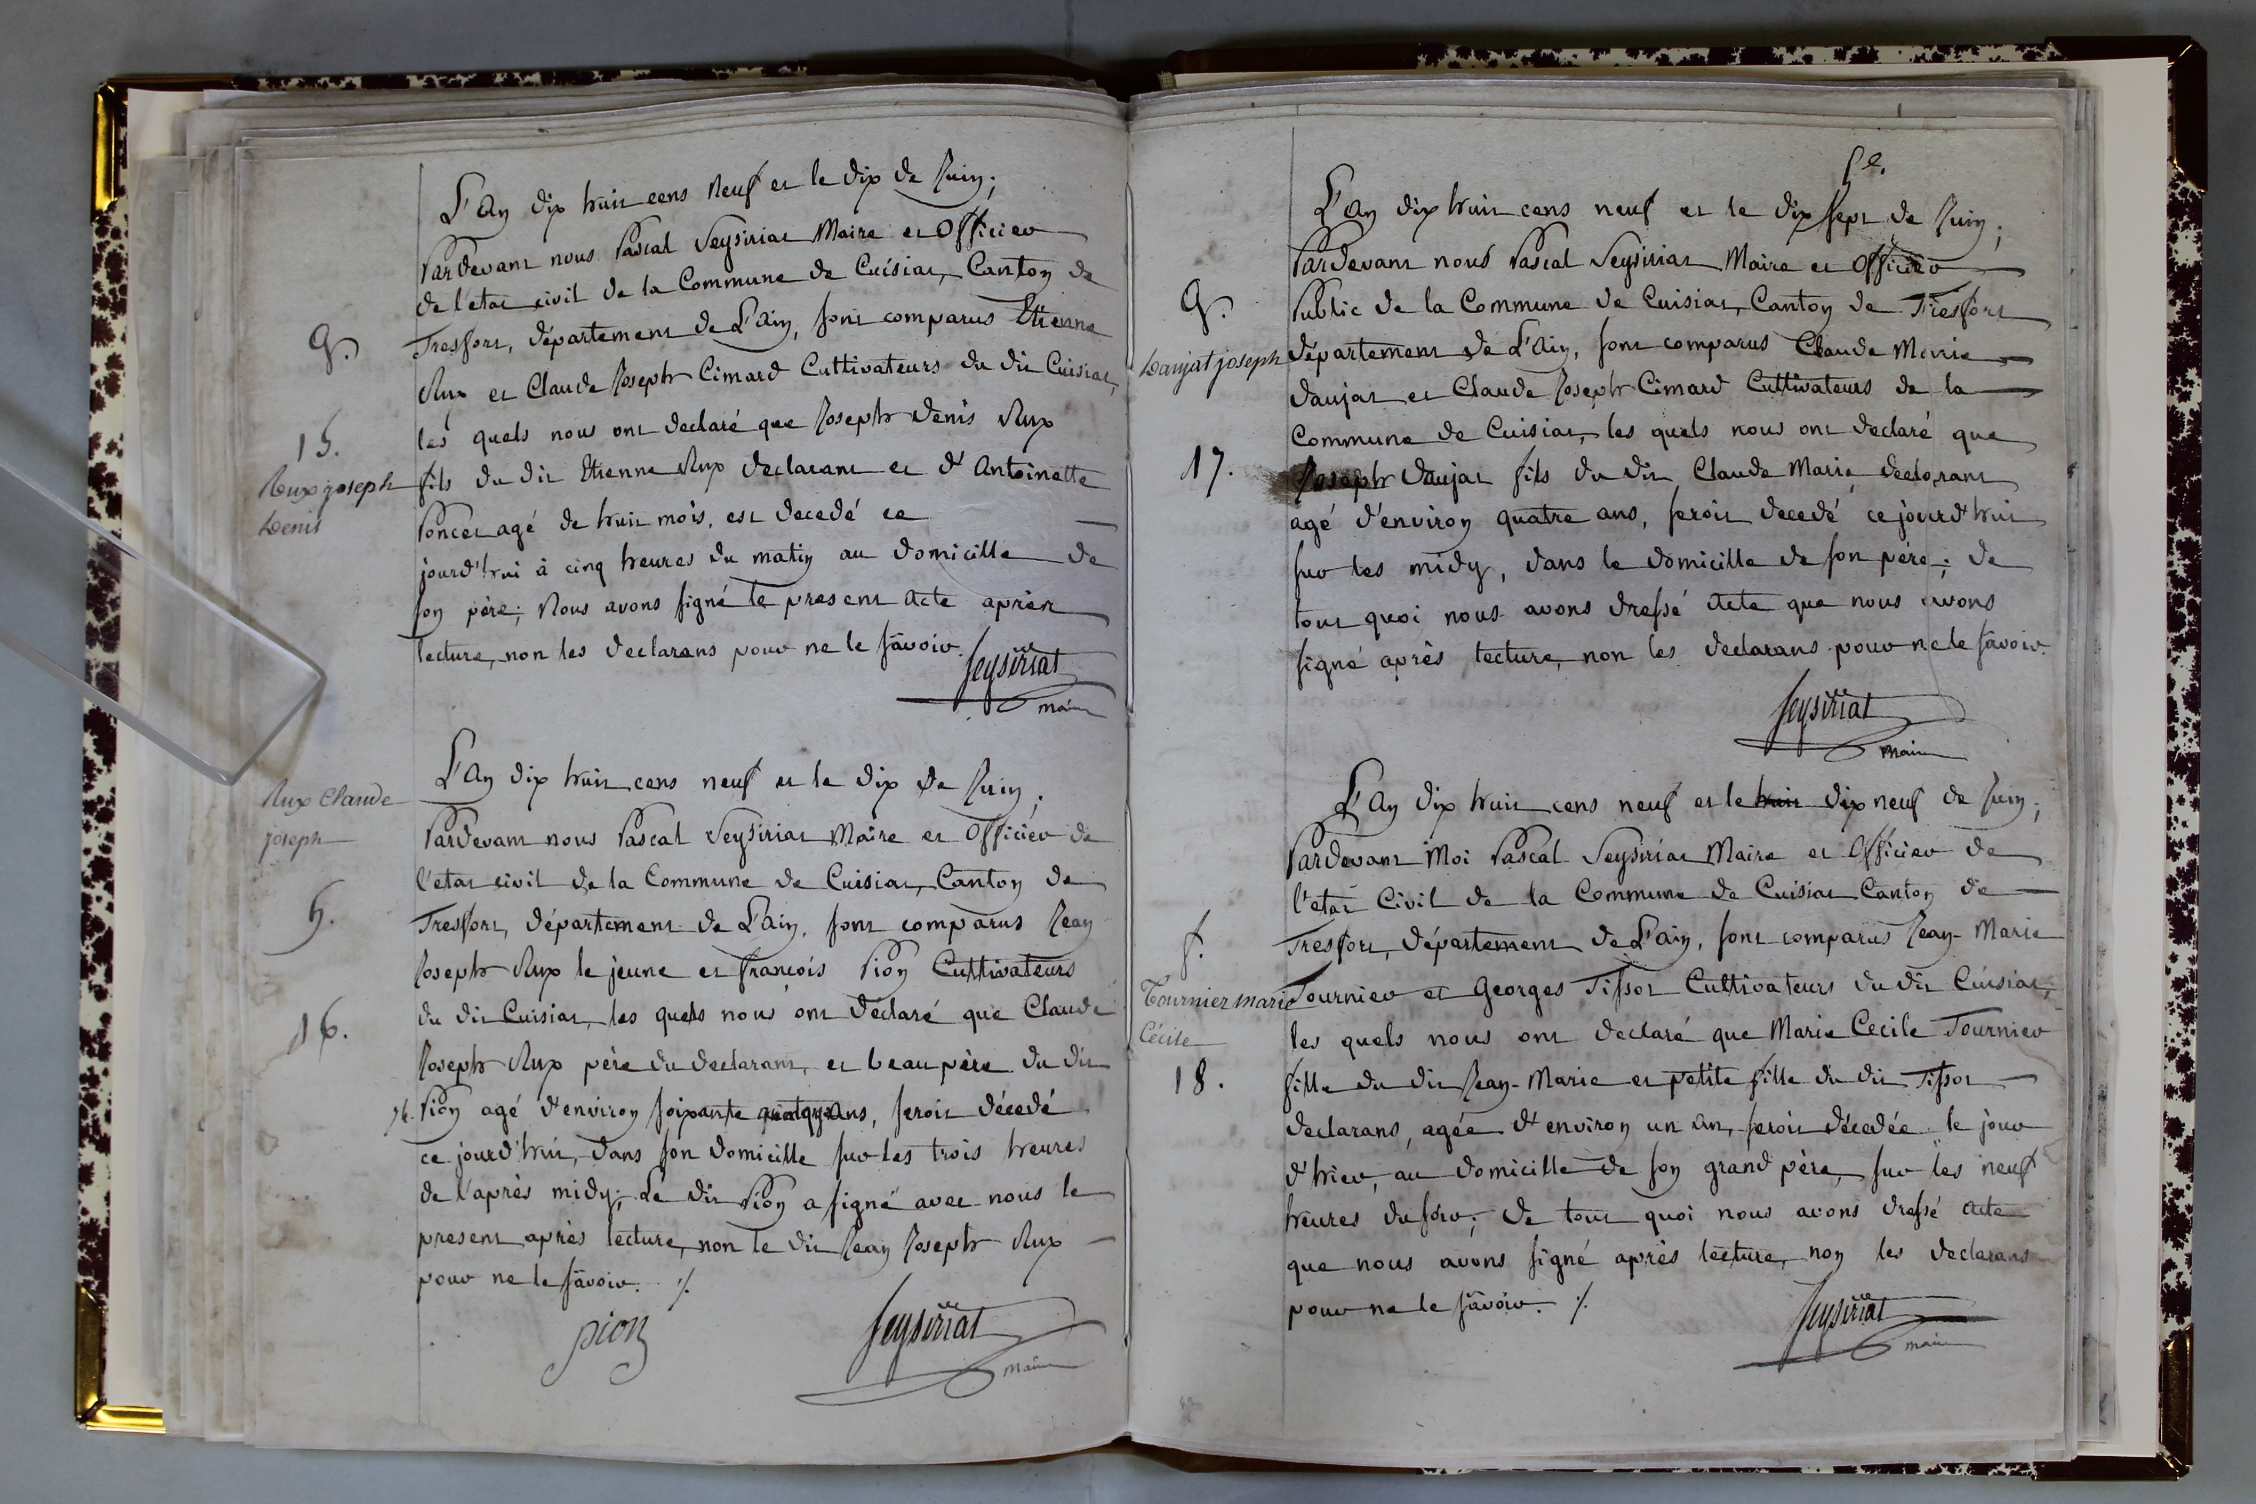 L'An dix huit cens neuf et le dix de Juin;
Pardevant nous Pascal Seysiriat Maire et Officier
de l'etat civil de la Commune de Cuisiat, Canton de
Tresfort, département de L'ain, sont comparus Etienne
Rux et Claude Joseph Cimard Cultivateurs du dit Cuisiat,
les quels nous ont declaré que Joseph Denis Rux
fils du dit Etienne Rux declarant et d'Antoinette
Poncet agé de huit mois, est decedé ce
jourd'hui à cinq heures du matin au domicille de
son père; Nous avons signé le present acte après
lecture, non les declarans pour ne le sävoir.
Seysiriat
maire
G.
15.
Rux joseph
Denis
L'An dix huit cens neuf et le dix de Juin;
Pardevant nous Pascal Seysiriat Maire et Officier de
l'etat civil de la Commune de Cuisiat, Canton de
Tresfort, département de L'ain, sont comparus Jean
Joseph Rux le jeune et françois Pion Cultivateurs
du dit Cuisiat, les quels nous ont declaré que Claude
Joseph Rux père du declarant, et beau père du dit
Pion agé d'environ soixante ans, seroit décedé
ce jourd'hui, dans son domicille sur les trois heures
de l'après midy; Le dit Pion a signé avec nous le
present après lecture, non le dit Jean Joseph Rux
pour ne le sävoir. ./.
pion
Seysiriat
maire
Rux Claude
joseph
h.
16.
L'An dix huit cens neuf et le dix sept de Juin;
Pardevant nous Pascal Seysiriat Maire et Officier
Public de la Commune de Cuisiat, Canton de Tresfort
département de L'ain, sont comparus Claude Marie
Daujat et Claude Joseph Cimard Cultivateurs de la
Commune de Cuisiat, les quels nous ont declaré que
Joseph Daujat fils du dit Claude Marie declarant
agé d'environ quatre ans, seroit decedé ce jourd'hui
sur les midy, dans le domicille de son père; de
tout quoi nous avons dressé Acte que nous avons
signé après lecture, non les declarans pour ne le sävoir.
Seysiriat
maire
G.
Daujat joseph
17.
L'An dix huit cens neuf et le huit dix neuf de Juin;
Pardevant Moi Pascal Seysiriat Maire et Officier de
l'etat Civil de la Commune de Cuisiat Canton de
Tresfort, département de L'ain, sont comparus Jean-Marie
Tournier et Georges Tissot Cultivateurs du dit Cuisiat,
les quels nous ont declaré que Marie Cecile Tournier
fille du dit Jean-Marie et petite fille du dit Tissot
declarans, agée d'environ un an, seroit décedée le jour
d'hier, au domicille de son grand père, sur les neuf
heures du soir; de tout quoi nous avons dressé acte
que nous avons signé après lecture, non les declarans
pour ne le sävoir. ./.
Seysiriat
maire
f.
Tournier marie
Cécile
18.